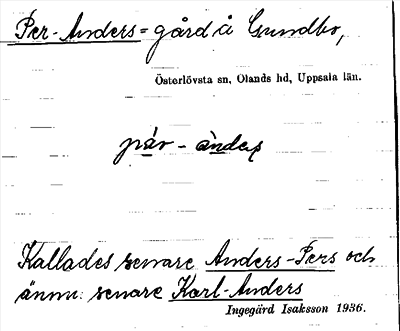 Per-Anders=gård å Grundbo,
Österlövsta sn, Olands hd, Uppsala län.
pàr - ànders
Kallades senare Anders-Pers och
ännu senare Karl-Anders
Ingegärd Isaksson 1936.